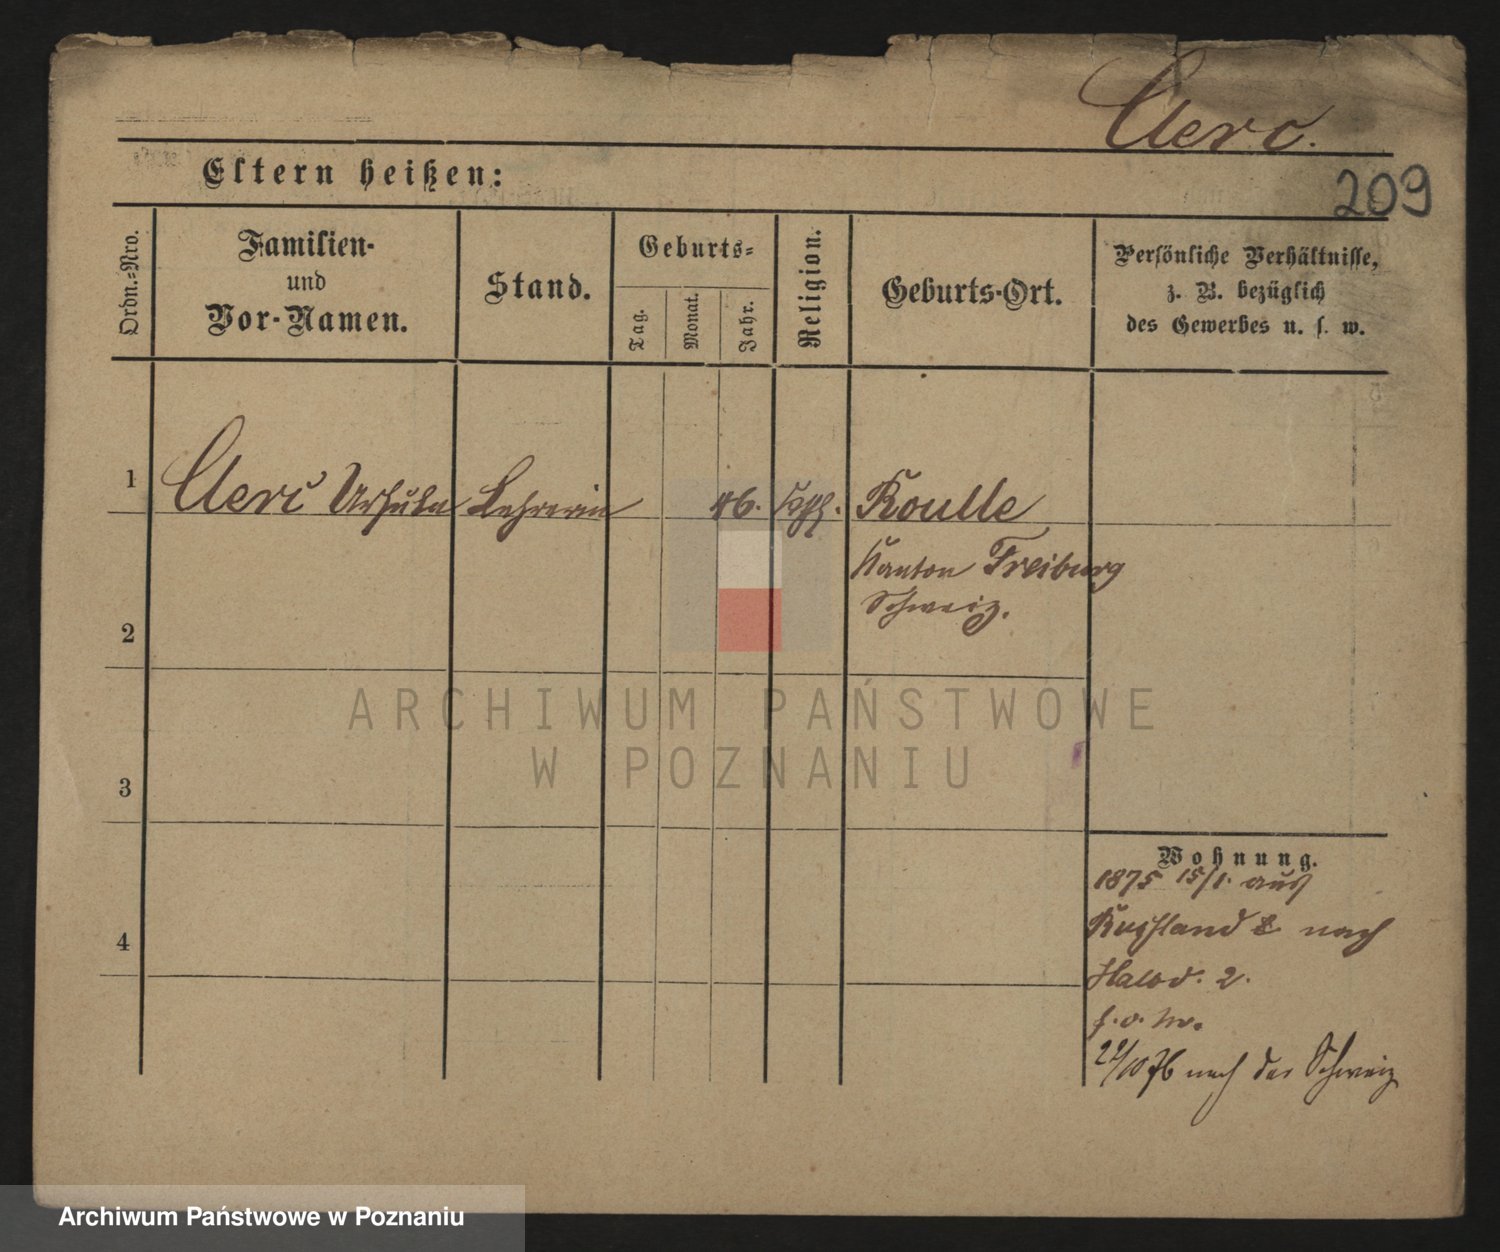 Clerc.
Eltern heißen:
209
Ordn.=Nro.
Familien-
und
Vor-Namen.
Stand.
Geburts=
Tag.
Monat.
Jahr.
Religion.
Geburts-Ort.
Persönliche Verhältnisse,
z. B. bezüglich
des Gewerbes u. s. w.
1
Clerc Ursula
Lehrerin
46.
kath.
Roulle
Kanton Freiburg
Schweiz.
2
3
4
Wohnung.
1875 15/1. aus
Rußland nach
2.
nach der Schweiz
ARCHIWUM PAŃSTWOWE
W POZNANIU
Archiwum Państwowe w Poznaniu